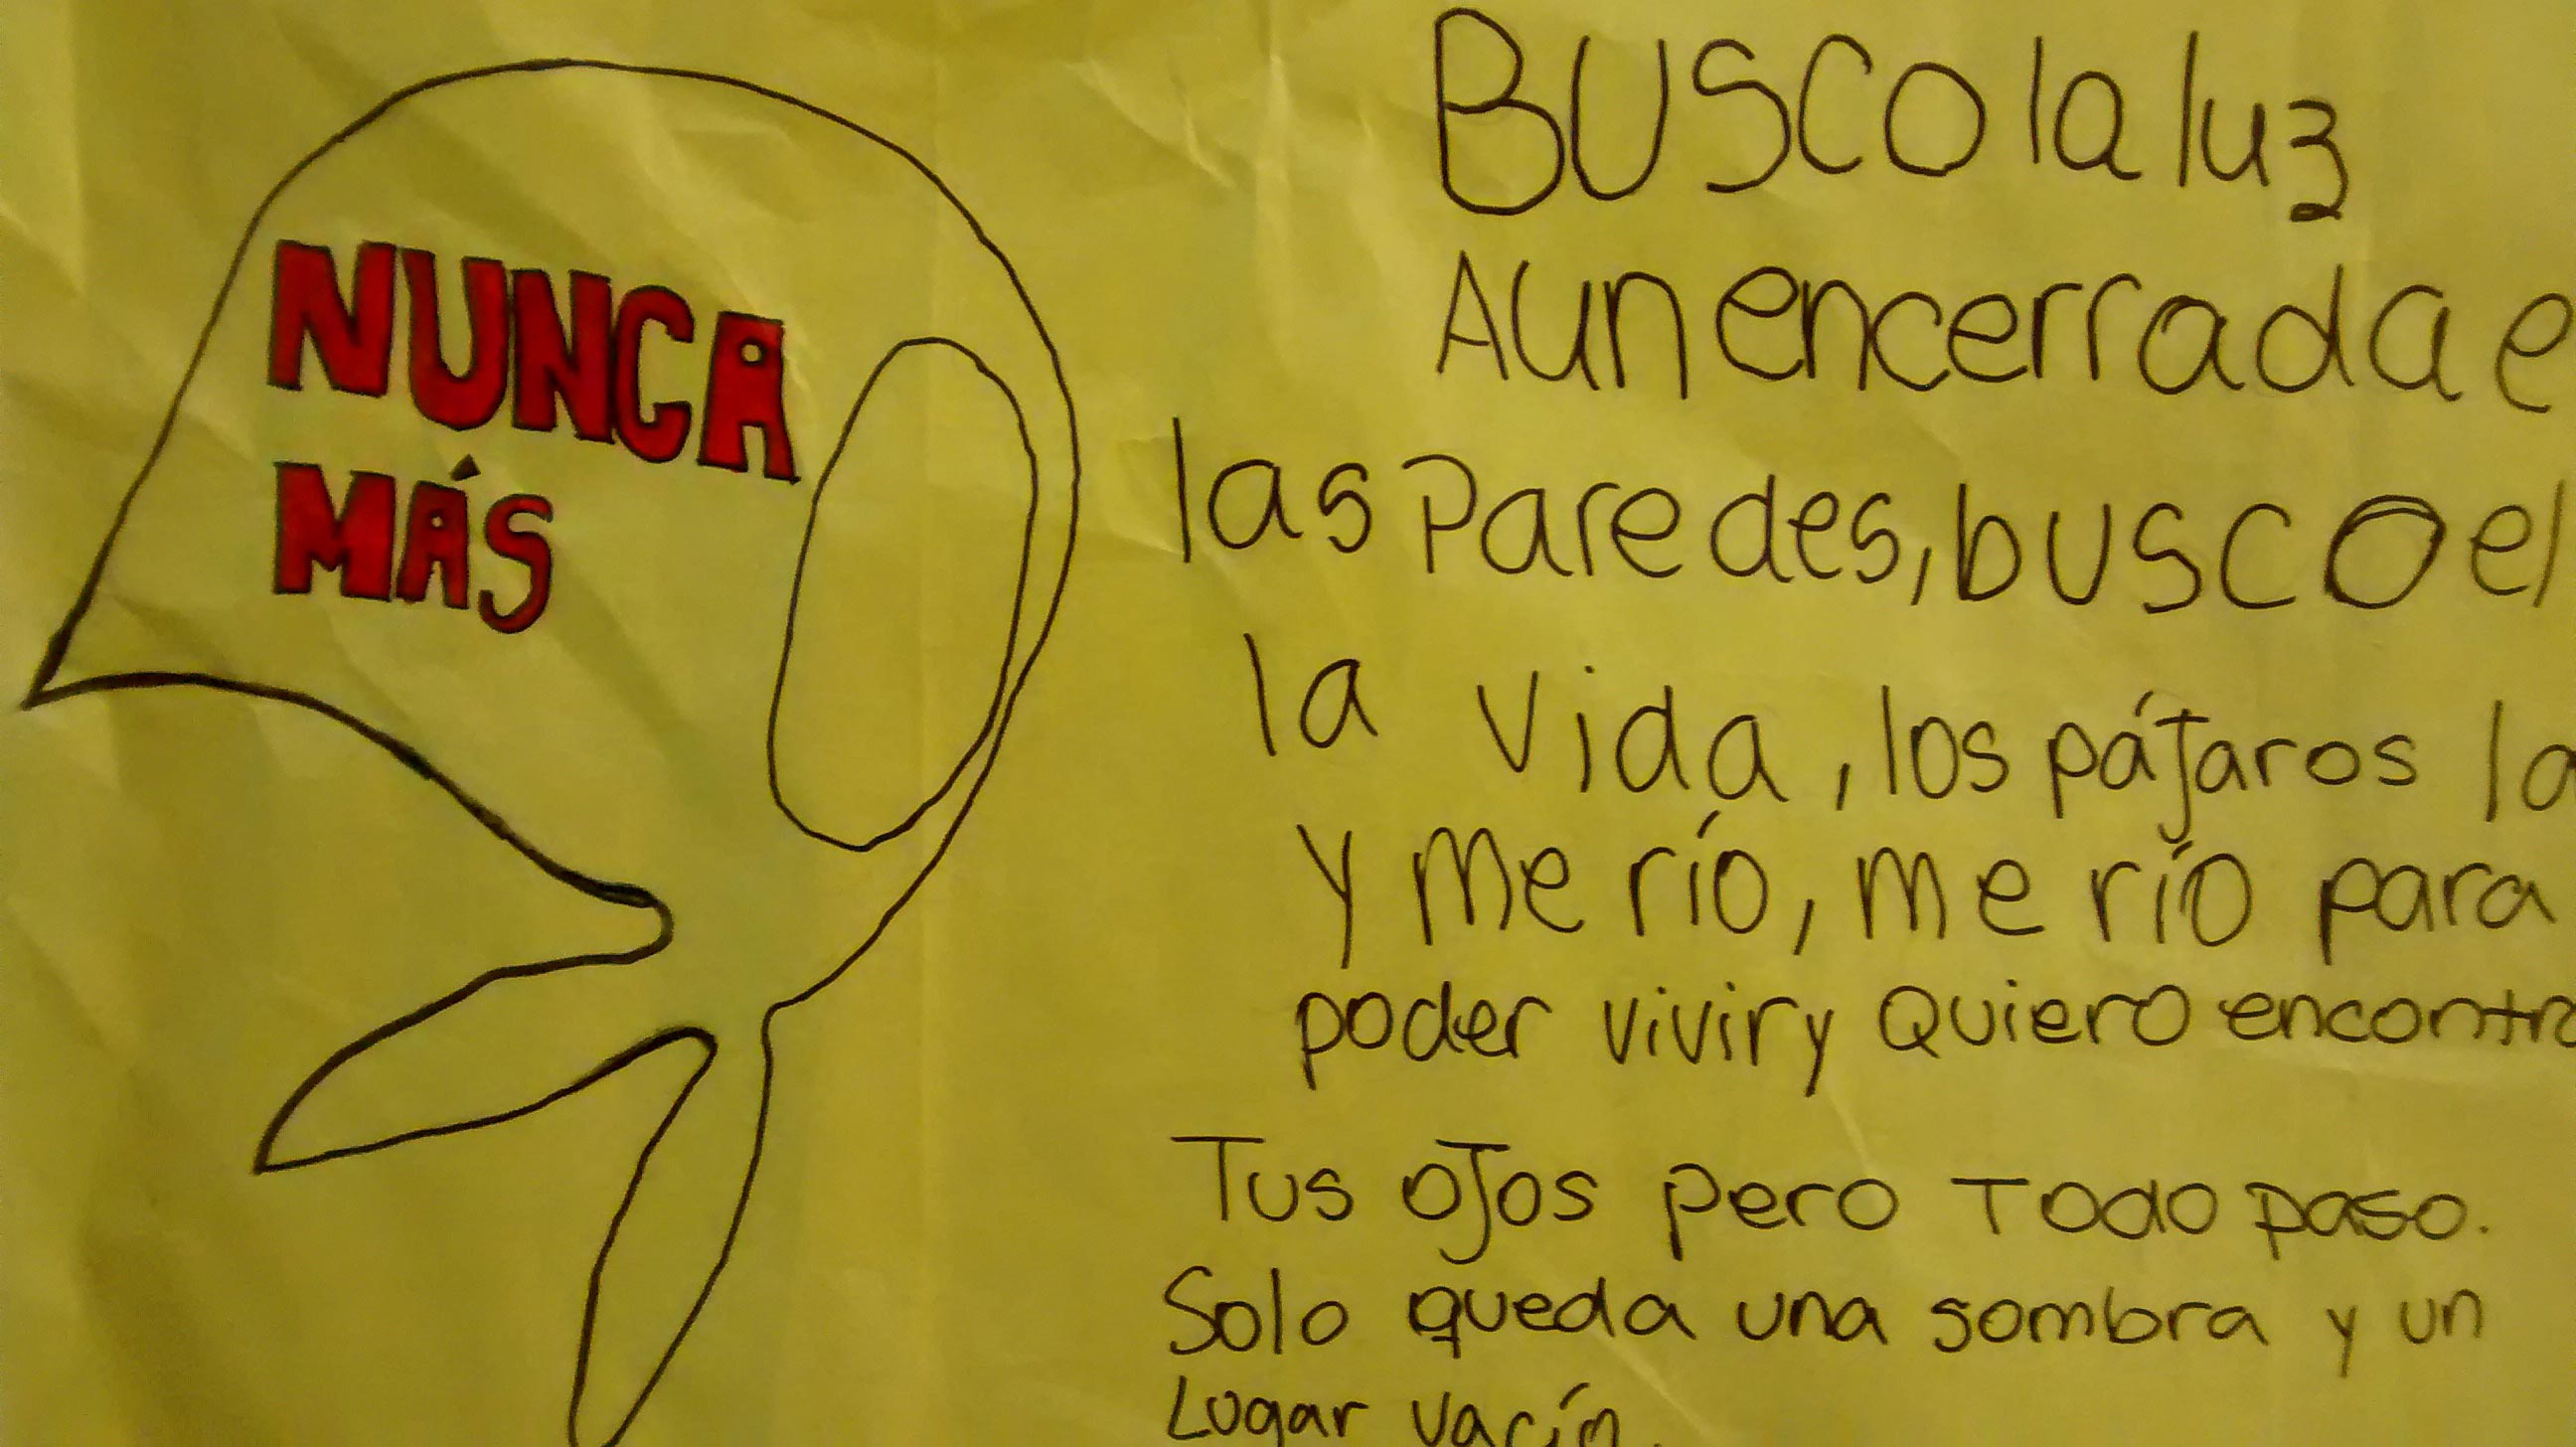 NUNCA
MÁS
BUSCO la luz
Aun encerrada e
las Paredes, busco el
la vida, los pájaros la
y me río, me río para
poder vivir y Quiero encontra
Tus ojos pero Todo paso.
Solo queda una sombra y un
Lugar vacío.